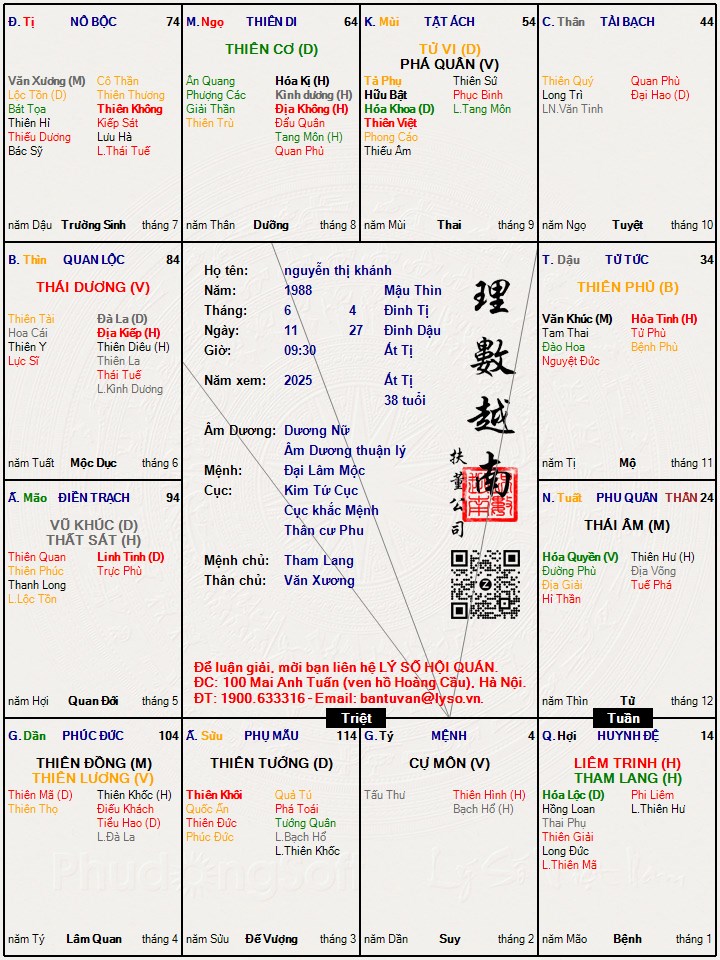 Đ. Tị NÔ BỘC 74
Văn Xương (M)
Lộc Tồn (D)
Bát Tọa
Thiên Hỉ
Thiếu Dương
Bác Sỹ
Cô Thần
Thiên Thương
Thiên Không
Kiếp Sát
Lưu Hà
L.Thái Tuế
năm Dậu Trường Sinh tháng 7
M. Ngọ THIÊN DI 64
THIÊN CƠ (D)
Ân Quang
Phượng Các
Giải Thần
Thiên Trù
Hóa Kị (H)
Kình dương (H)
Địa Không (H)
Đẩu Quân
Tang Môn (H)
Quan Phủ
năm Thân Dưỡng tháng 8
K. Mùi TẬT ÁCH 54
TỬ VI (D)
PHÁ QUÂN (V)
Tả Phụ
Hữu Bật
Hóa Khoa (D)
Thiên Việt
Phong Cáo
Thiếu Âm
Thiên Sứ
Phục Binh
L.Tang Môn
năm Mùi Thai tháng 9
C. Thân TÀI BẠCH 44
Thiên Quý
Long Trì
LN.Văn Tinh
Quan Phù
Đại Hao (D)
năm Ngọ Tuyệt tháng 10
B. Thìn QUAN LỘC 84
THÁI DƯƠNG (V)
Thiên Tài
Hoa Cái
Thiên Y
Lực Sĩ
Đà La (D)
Địa Kiếp (H)
Thiên Diêu (H)
Thiên La
Thái Tuế
L.Kình Dương
năm Tuất Mộc Dục tháng 6
Họ tên: nguyễn thị khánh
Năm: 1988 Mậu Thìn
Tháng: 6 4 Đinh Tị
Ngày: 11 27 Đinh Dậu
Giờ: 09:30 Ất Tị
Năm xem: 2025 Ất Tị
38 tuổi
Âm Dương: Dương Nữ
Âm Dương thuận lý
Mệnh: Đại Lâm Mộc
Cục: Kim Tứ Cục
Cục khắc Mệnh
Thân cư Phu
Mệnh chủ: Tham Lang
Thân chủ: Văn Xương
理數越南
扶董公司
Để luận giải, mời bạn liên hệ LÝ SỐ HỘI QUÁN.
ĐC: 100 Mai Anh Tuấn (ven hồ Hoàng Cầu), Hà Nội.
ĐT: 1900.633316 - Email: bantuvan@lyso.vn.
T. Dậu TỬ TỨC 34
THIÊN PHỦ (B)
Văn Khúc (M)
Tam Thai
Đào Hoa
Nguyệt Đức
Hỏa Tinh (H)
Tử Phù
Bệnh Phù
năm Tị Mộ tháng 11
Ấ. Mão ĐIỀN TRẠCH 94
VŨ KHÚC (D)
THẤT SÁT (H)
Thiên Quan
Thiên Phúc
Thanh Long
L.Lộc Tồn
Linh Tinh (D)
Trực Phù
năm Hợi Quan Đới tháng 5
N. Tuất PHU QUÂN THÂN 24
THÁI ÂM (M)
Hóa Quyền (V)
Đường Phù
Địa Giải
Hỉ Thần
Thiên Hư (H)
Địa Võng
Tuế Phá
năm Thìn Tử tháng 12
Triệt
Tuần
G. Dần PHÚC ĐỨC 104
THIÊN ĐỒNG (M)
THIÊN LƯƠNG (V)
Thiên Mã (D)
Thiên Thọ
Thiên Khốc (H)
Điếu Khách
Tiểu Hao (D)
L.Đà La
năm Tý Lâm Quan tháng 4
Ấ. Sửu PHỤ MẪU 114
THIÊN TƯỚNG (D)
Thiên Khôi
Quốc Ấn
Thiên Đức
Phúc Đức
Quả Tú
Phá Toái
Tướng Quân
L.Bạch Hổ
L.Thiên Khốc
năm Sửu Đế Vượng tháng 3
G. Tý MỆNH 4
CỰ MÔN (V)
Tấu Thư
Thiên Hình (H)
Bạch Hổ (H)
năm Dần Suy tháng 2
Q. Hợi HUYNH ĐỆ 14
LIÊM TRINH (H)
THAM LANG (H)
Hóa Lộc (D)
Hồng Loan
Thai Phụ
Thiên Giải
Long Đức
L.Thiên Mã
Phi Liêm
L.Thiên Hư
năm Mão Bệnh tháng 1